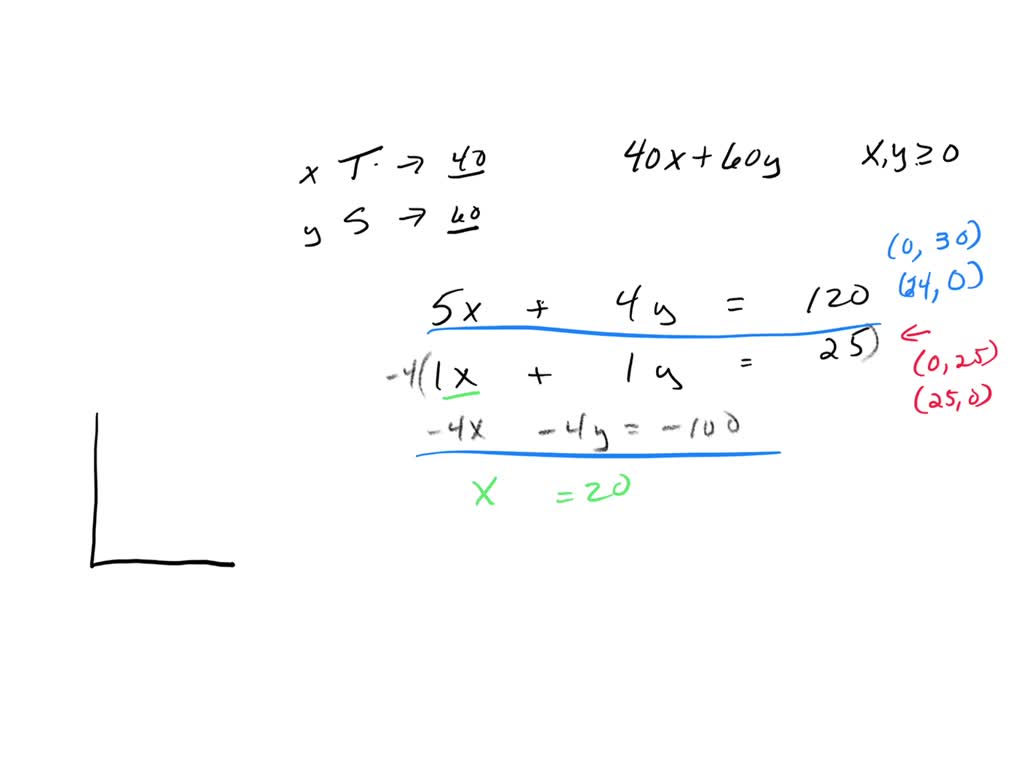 x T. → 40 40x + 60y x, y ≥ 0
y S → 60
(0, 30)
(24, 0)
5x + 4y = 120
-4(1x + 1y = 25) ← (0, 25)
(25, 0)
-4x -4y = -100
x = 20